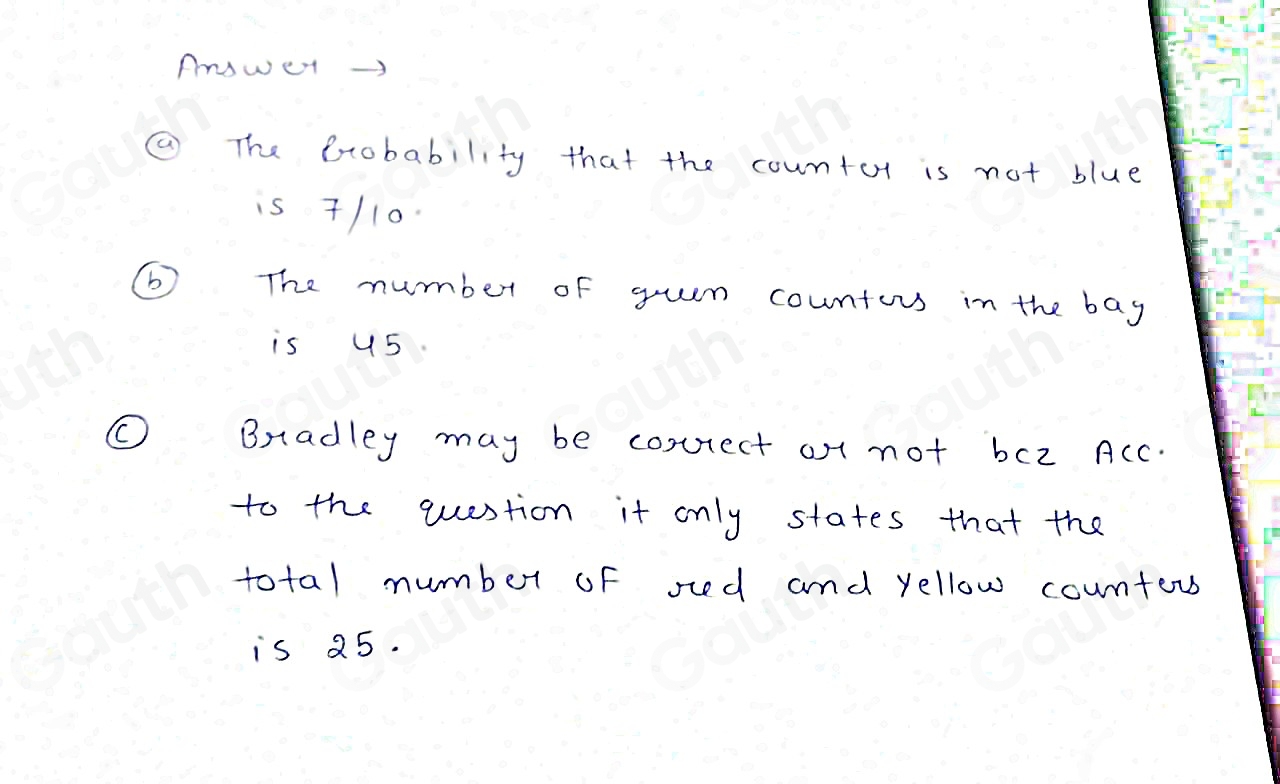 Answer →
(a) The Probability that the counter is not blue
is 7/10.
(b) The number of green counters in the bag
is 45.
(c) Bradley may be correct or not bcz Acc.
to the question it only states that the
total number of red and yellow counters
is 25.
Gauth